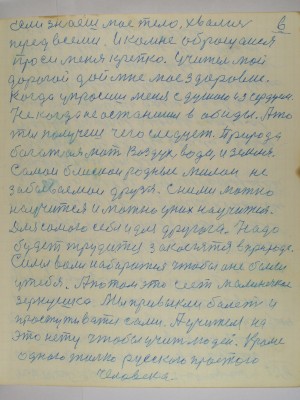 если знаеш мое тело, хвалил 6
перед всеми. И ко мне обращался
проси меня крепко. Учитель мой
дорогой дай мне мое здоровье.
Когда упросиш меня с душою и сердцем
Некогда не останиш в обиды. А то
ты получиш чего следует. Природа
богатая мать Воздух вода, и земля.
Самои близкои родныи милои не
забываемои друзя. С ними можно
научится и можно у них научится.
Для самого себя и для другога. Надо
будет трудится закалятся в природе.
Силы воли набератся чтобы оне были
у тебя. А потом это сеет маленичкое
зернушко. Мы привыкли болеть и
простуживатся сами. А учителя на
это нету чтобы учит людей. Кроме
одного тилко русского простого
человека.